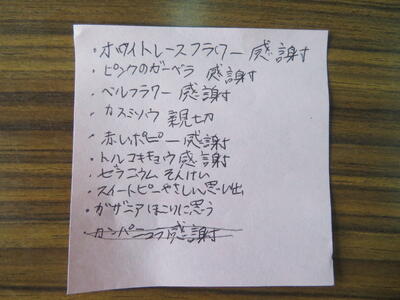 ・ホワイトレースフラワー 感謝
・ピンクのガーベラ 感謝
・ベルフラワー 感謝
・カスミソウ 親切
・赤いポピー 感謝
・トルコキキョウ 感謝
・ゼラニウム そんけい
・スイートピー やさしい思い出
・ガザニア ほこりに思う
・カンパニュラ 感謝